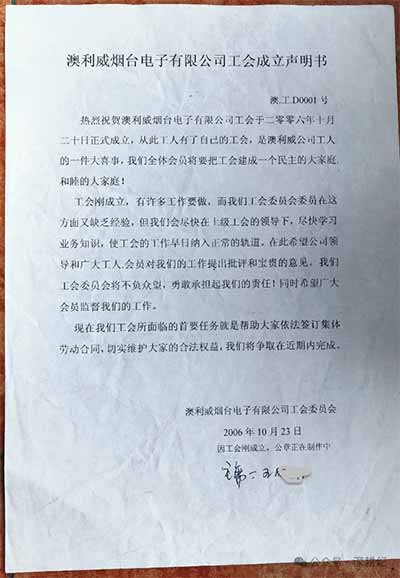 澳利威烟台电子有限公司工会成立声明书
澳.工.D0001 号
热烈祝贺澳利威烟台电子有限公司工会于二零零六年十月
二十日正式成立，从此工人有了自己的工会，是澳利威公司工人
的一件大喜事，我们全体会员将要把工会建成一个民主的大家庭.
和睦的大家庭！
工会刚成立，有许多工作要做，而我们工会委员会委员在这
方面又缺乏经验，但我们会尽快在上级工会的领导下，尽快学习
业务知识，使工会的工作早日纳入正常的轨道，在此希望公司领
导和广大工人.会员对我们的工作提出批评和宝贵的意见，我们
工会委员会将不负众望，勇敢承担起我们的责任！同时希望广大
会员监督我们的工作。
现在我们工会所面临的首要任务就是帮助大家依法签订集体
劳动合同，切实维护大家的合法权益，我们将争取在近期内完成。
澳利威烟台电子有限公司工会委员会
2006 年 10 月 23 日
因工会刚成立，公章正在制作中
主席：
公众号